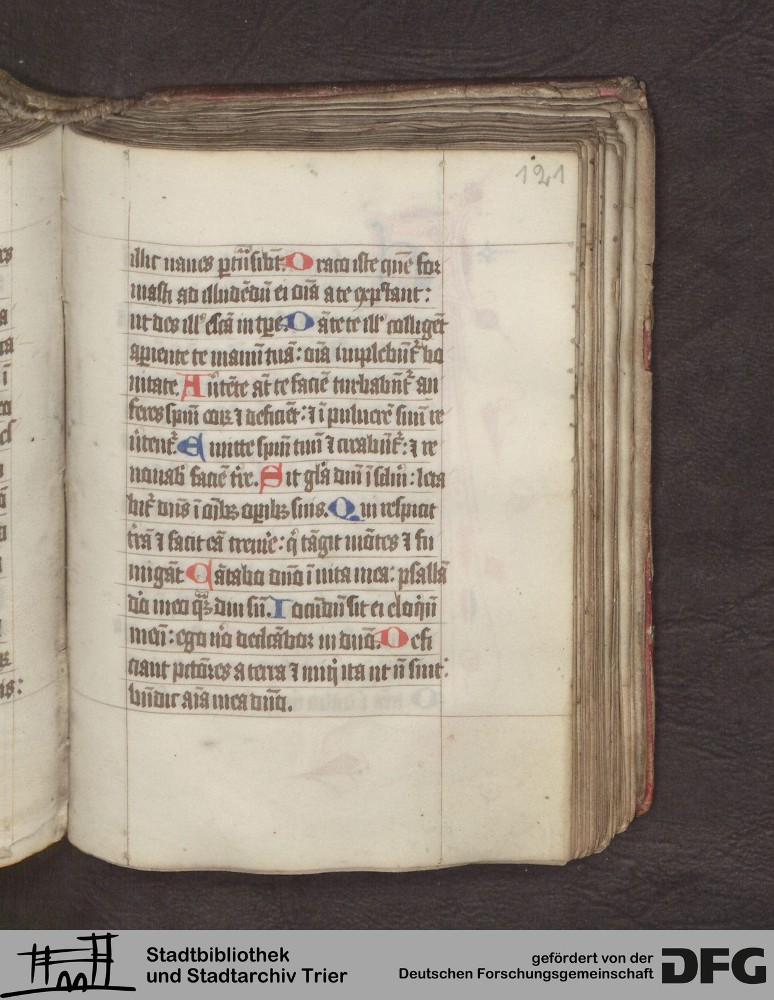 121
illic naues ꝑtͣnsibūt. Draco iste quē for
masti ad illudēdū ei oīa a te expectant:
ut des ill' escā in tpe. Dāte te ill' colliget
aperiente te manū tuā: oīa implebūtͬ bo
nitate. Auertēte at̄ te faciē turbabūtͬ au
feres spm̄ eoꝝ ⁊ deficiēt: ⁊ ī puluerē suū re
uertentͬ. Emitte spm̄ tuū ⁊ creabūtͬ: ⁊ re
nouab' faciē tr̄e. Sit glā dnī ī sclm̄: leta
bitͬ dn̄s ī oībꝫ oꝑibꝫ suis. Qui respicit
trā ⁊ facit eā treme': qͥ tāgit mōtes ⁊ fu
migāt Cātabo dno ī uita mea: psallā
dō meo qͣꝫ diu sū. Iocūdū sit ei eloqͥū
meū: ego uͦo delcābor in dnō. Defi
ciant pctōres a terra ⁊ iniqͥ ita ut n̄ sint:
bn̄dic aīa mea dnō.
Stadtbibliothek
und Stadtarchiv Trier
gefördert von der
Deutschen Forschungsgemeinschaft
DFG